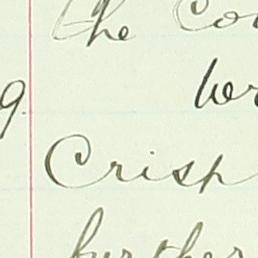 the Co
9.
Crisp
further